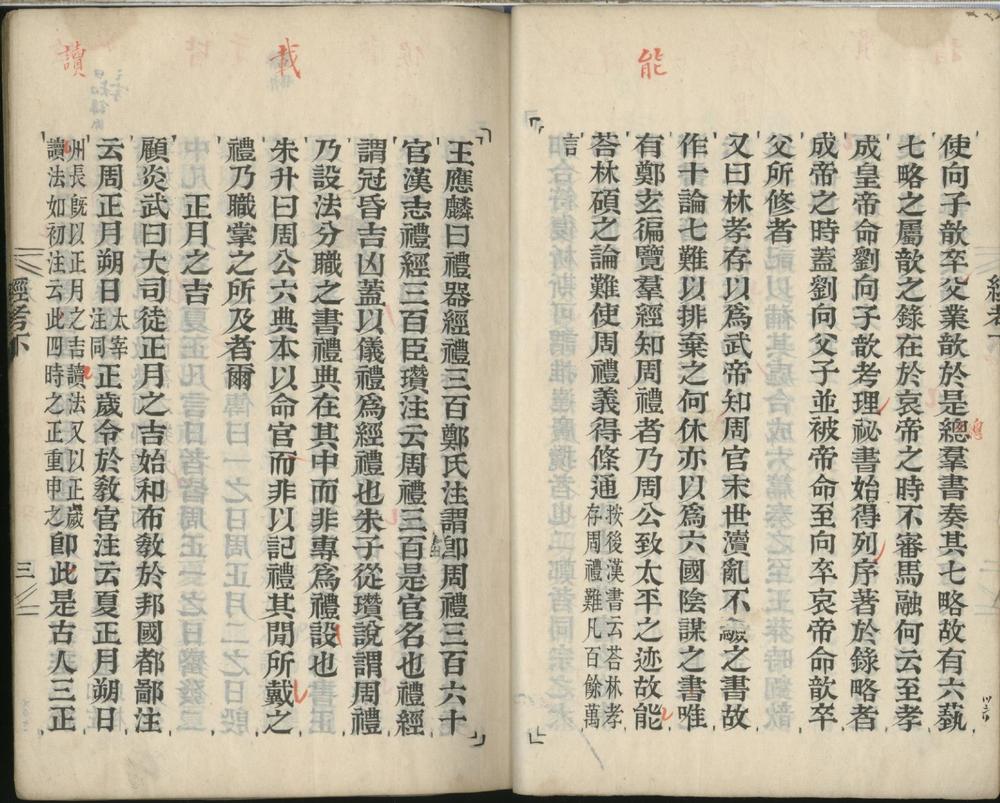 使向子歆卒父業歆於是總羣書奏其七略故有六蓺
七略之屬歆之錄在於哀帝之時不審馬融何云至孝
成皇帝命劉向子歆考理祕書始得列序著於錄略者
成帝之時蓋劉向父子並被帝命至向卒哀帝命歆卒
父所修者
又曰林孝存以爲武帝知周官末世瀆亂不驗之書故
作十論七難以排棄之何休亦以爲六國陰謀之書唯
有鄭玄徧覽羣經知周禮者乃周公致太平之迹故能
荅林碩之論難使周禮義得條通按後漢書云荅林孝存周禮難凡百餘萬
言
能
總
經考下
王應麟曰禮器經禮三百鄭氏注謂卽周禮三百六十
官漢志禮經三百臣瓚注云周禮三百是官名也禮經
謂冠昏吉凶蓋以儀禮爲經禮也朱子從瓚說謂周禮
乃設法分職之書禮典在其中而非專爲禮設也
朱升曰周公六典本以命官而非以記禮其閒所戴之
禮乃職掌之所及者爾
正月之吉
顧炎武曰大司徒正月之吉始和布敎於邦國都鄙注
云周正月朔日太宰注同正歲令於敎官注云夏正月朔日
州長旣以正月之吉讀法又以正歲讀法如初注云此四時之正重申之卽此是古人三正
載
讀
經考下
三